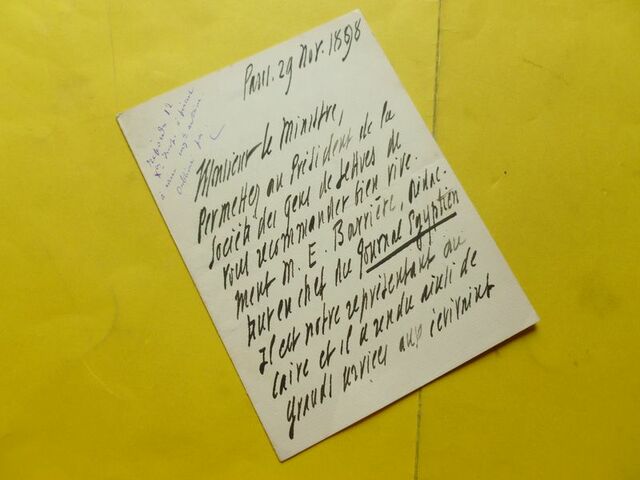 Paris. 29 Nov. 1898
Monsieur le Ministre,
Permettez au Président de la
Société des gens de lettres de
vous recommander bien vive-
ment M. E. Barrière, rédac-
teur en chef du Journal Egyptien
Il est notre représentant au
Caire et il a rendu ainsi de
grands services aux écrivains